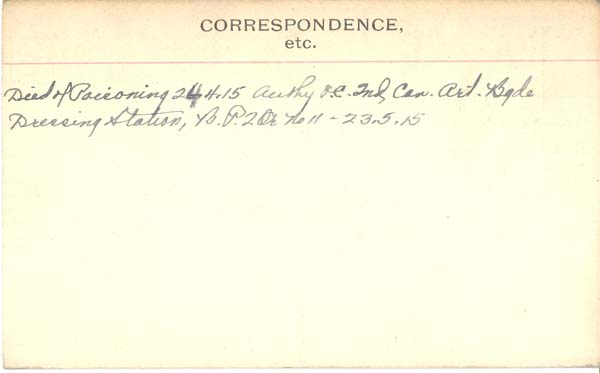 CORRESPONDENCE,
etc.
Died of Poisoning 24.4.15 Authy O.C. 2nd, Can. Art. Bgde
Dressing Station, B. P. 2 Or No 11 - 23.5.15